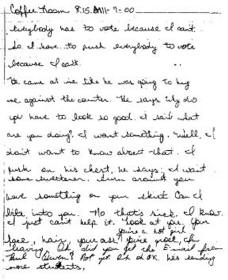 Coffee Room 8:15 AM - 9:00
everybody has to vote because I can't.
So I have to push everybody to vote
because I can't.
He came at me like he was going to hug
me against the counter. He says why do
you have to look so good. I said what
are you doing? I want something. Well, I
don't want to know about that. I
push on his chest, he says, I want
some sweetener. Turn around you
have something on your skirt. Can I
bite into you. No that's sick. I know.
I just can't help it. Look at you your
you're a hot girl
face, hair, your ass! you're great, the
leaving. did you get the Email from
Gwen? Not yet his is OK he's sending
more students.